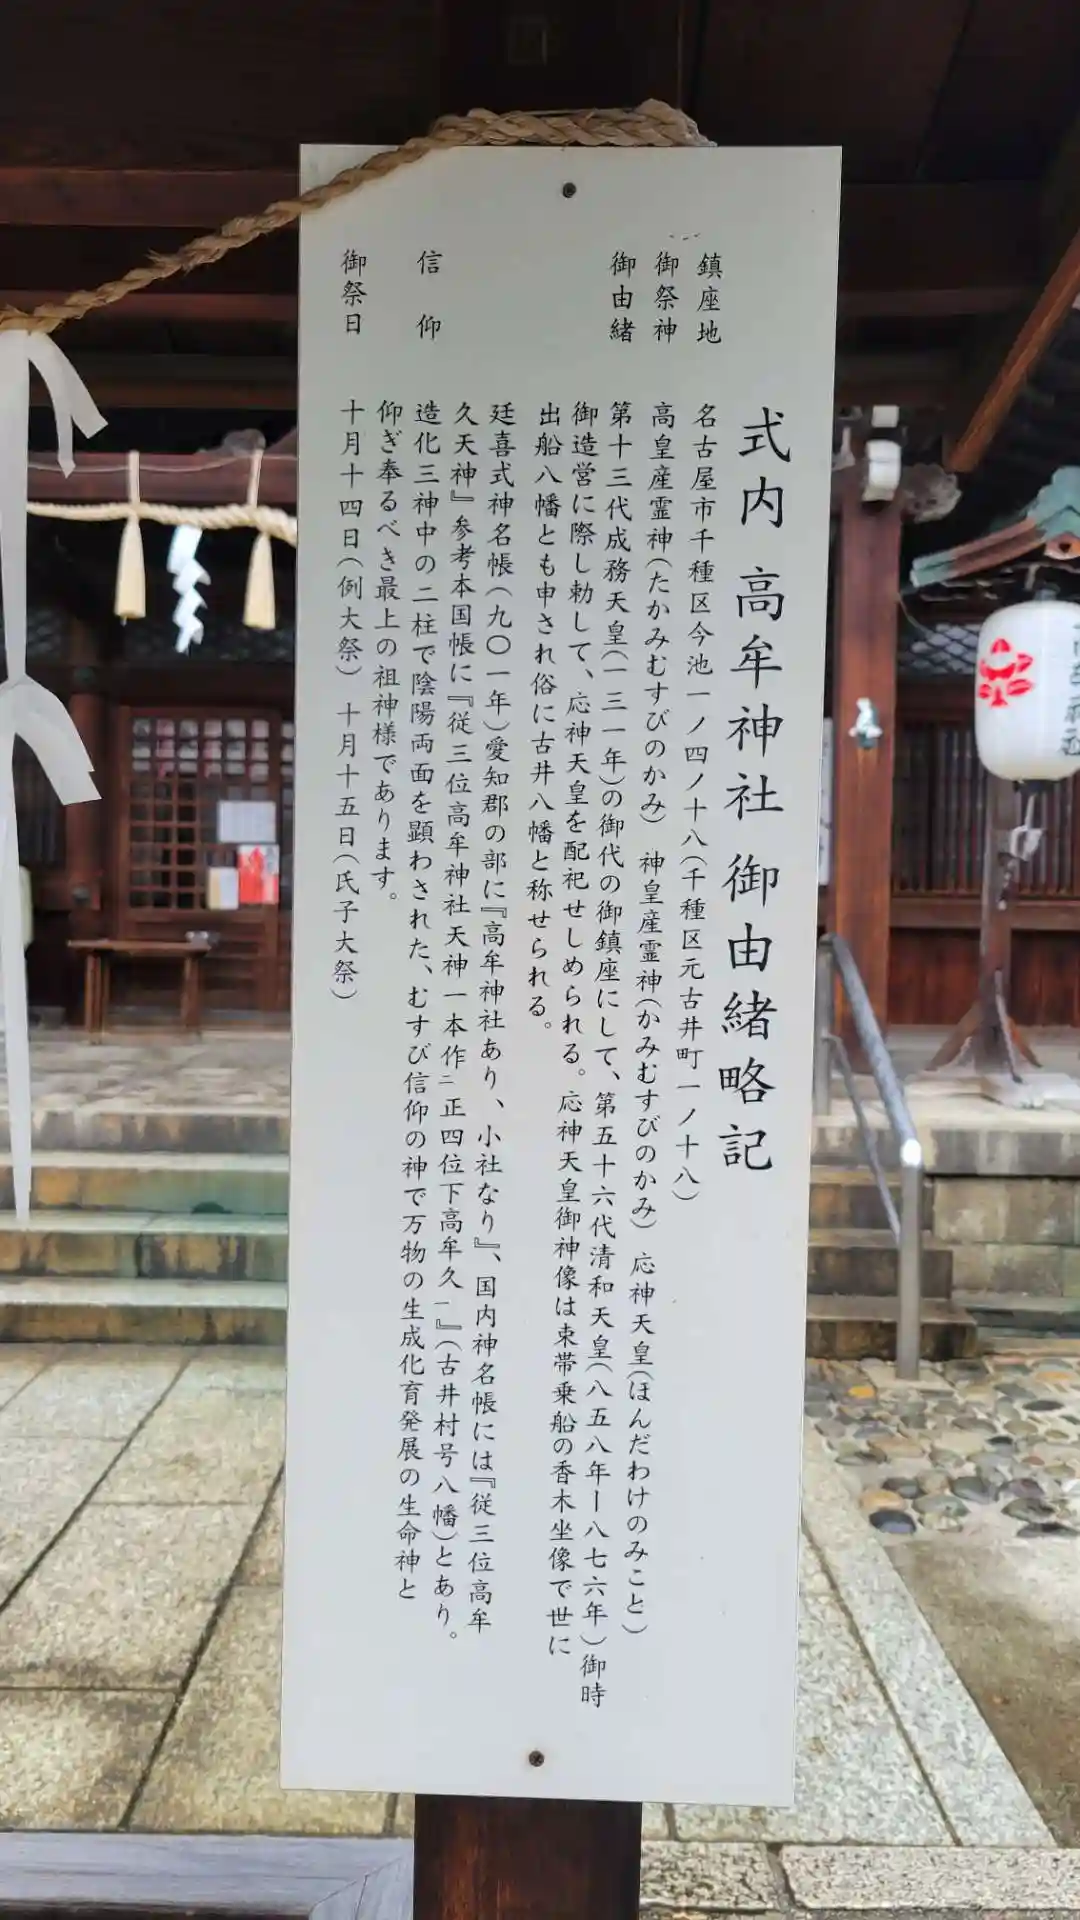 式内 高牟神社 御由緒略記
鎮座地 名古屋市千種区今池一ノ四ノ十八(千種区元古井町一ノ十八)
御祭神 高皇産霊神(たかみむすびのかみ) 神皇産霊神(かみむすびのかみ) 応神天皇(ほんだわけのみこと)
御由緒 第十三代成務天皇(一三一年)の御代の御鎮座にして、第五十六代清和天皇(八五八年ー八七六年)御時
御造営に際し勅して、応神天皇を配祀せしめられる。応神天皇御神像は束帯乗船の香木坐像で世に
出船八幡とも申され俗に古井八幡と称せられる。
廷喜式神名帳(九〇一年)愛知郡の部に『高牟神社あり、小社なり』、国内神名帳には『従三位高牟
久天神』参考本国帳に『従三位高牟神社天神一本作ニ正四位下高牟久一』(古井村号八幡)とあり。
信仰 造化三神中の二柱で陰陽両面を顕わされた、むすび信仰の神で万物の生成化育発展の生命神と
仰ぎ奉るべき最上の祖神様であります。
御祭日 十月十四日(例大祭) 十月十五日(氏子大祭)
高牟神社